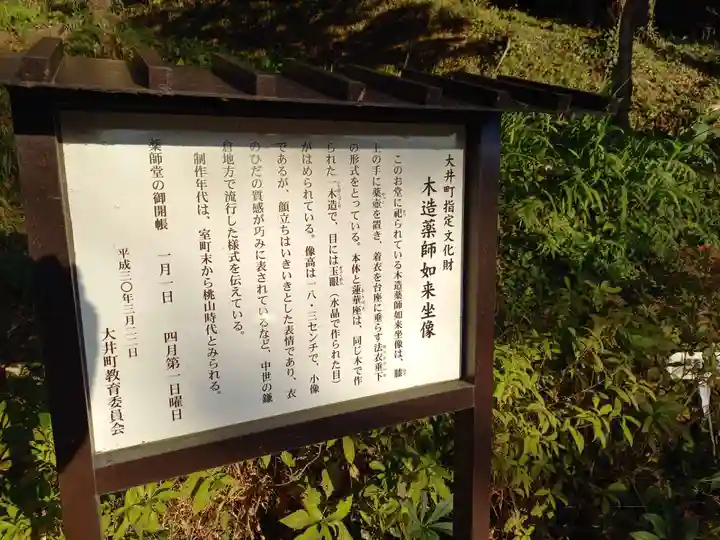 大井町指定文化財
木造薬師如来坐像
このお堂に祀られている木造薬師如来坐像は、膝
上の手に薬壺を置き、着衣を台座に垂らす法衣垂下
の形式をとっている。本体と蓮華座は、同じ木で作
られた一木造で、目には玉眼(水晶で作られた目)
がはめられている。像高は一八・三センチで、小像
であるが、顔立ちはいきいきとした表情であり、衣
のひだの質感が巧みに表されているなど、中世の鎌
倉地方で流行した様式を伝えている。
制作年代は、室町末から桃山時代とみられる。
薬師堂の御開帳 一月一日 四月第一日曜日
平成三〇年三月二二日
大井町教育委員会